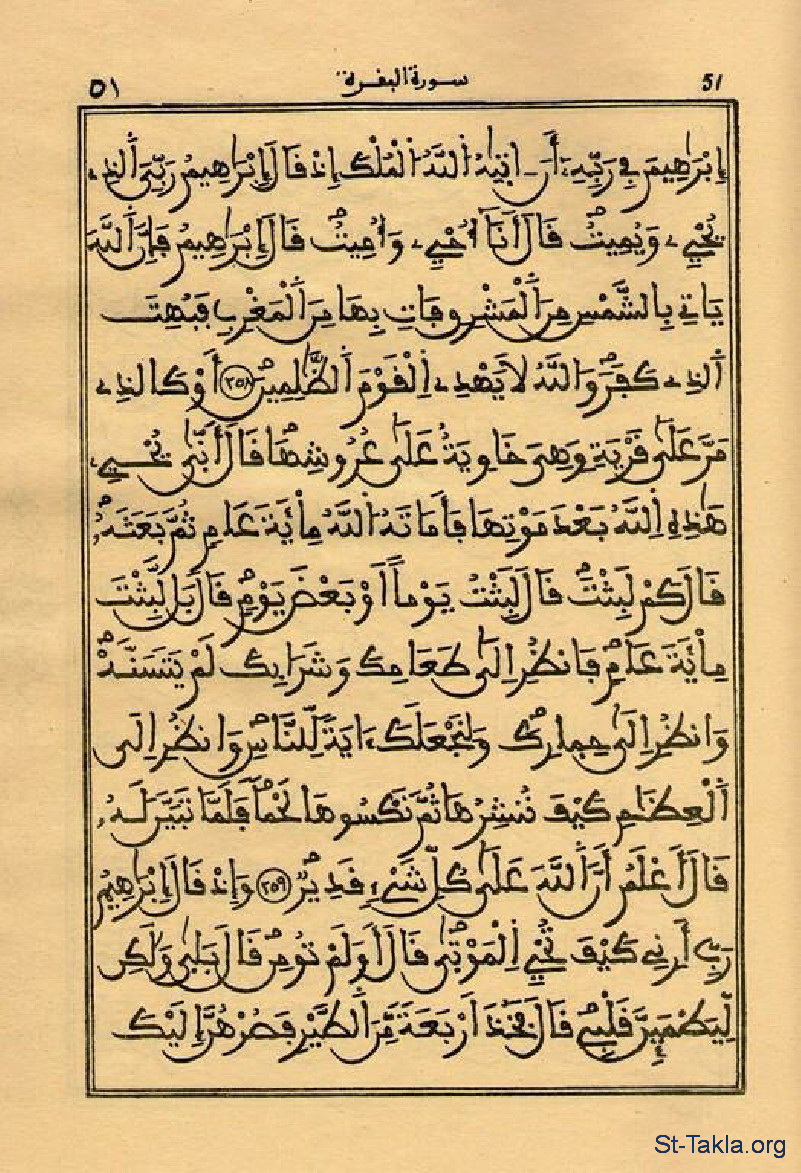 51 سورة البقرة ٥١
إِبْرَاهِيمَ فِي رَبِّهِۦٓ أَنَ ـاتِيٰهُ اُللَّهُ اُلْمُلْكَ إِذْ قَالَ إِبْرَاهِيمُ رَبِّيَ اَلذِے
يُحْيِۦ وَيُمِيتُ قَالَ أَنَآ أُحْيِۦ وَأُمِيتُ قَالَ إِبْرَاهِيمُ فَإِنَّ اَللَّهَ
يَاتِي بِالشَّمْسِ مِنَ اَلْمَشْرِقِ فَاتِ بِهَا مِنَ اَلْمَغْرِبِ فَبُهِتَ
اَلذِے كَفَرَ وَاللَّهُ لَا يَهْدِے اِلْقَوْمَ اَلظَّٰلِمِينَ ٢٥٨ أَوْ كَالذِے
مَرَّ عَلَىٰ قَرْيَةٍ وَهِيَ خَاوِيَةٌ عَلَىٰ عُرُوشِهَا قَالَ أَنّٰى يُحْيِۦ
هَٰذِهِ اِللَّهُ بَعْدَ مَوْتِهَا فَأَمَاتَهُ اُللَّهُ مِاْئَةَ عَامٍ ثُمَّ بَعَثَهُۥ
قَالَ كَمْ لَبِثْتَ قَالَ لَبِثْتُ يَوْماً أَوْ بَعْضَ يَوْمٍ قَالَ بَل لَّبِثْتَ
مِاْئَةَ عَامٍ فَانظُرِ اِلَىٰ طَعَامِكَ وَشَرَابِكَ لَمْ يَتَسَنَّهْ
وَانظُرِ اِلَىٰ حِمارِكَ وَلِنَجْعَلَكَ ءَايَةً لِّلنَّاسِ وَانظُرِ اِلَى
اَلْعِظَٰمِ كَيْفَ نُنشِرُهَا ثُمَّ نَكْسُوهَا لَحْماً فَلَمَّا تَبَيَّنَ لَهُۥ
قَالَ أَعْلَمُ أَنَّ اَللَّهَ عَلَىٰ كُلِّ شَيْءٍ قَدِيرٌ ٢٥٩ وَإِذْ قَالَ إِبْرَاهِيمُ
رَبِّ أَرِنِي كَيْفَ تُحْيِ اِلْمَوْتٰى قَالَ أَوَلَمْ تُومِن قَالَ بَلٰى وَلَٰكِن
لِّيَطْمَئِنَّ قَلْبِي قَالَ فَخُذَ اَرْبَعَةً مِّنَ اَلطَّيْرِ فَصُرْهُنَّ إِلَيْكَ
St-Takla.org